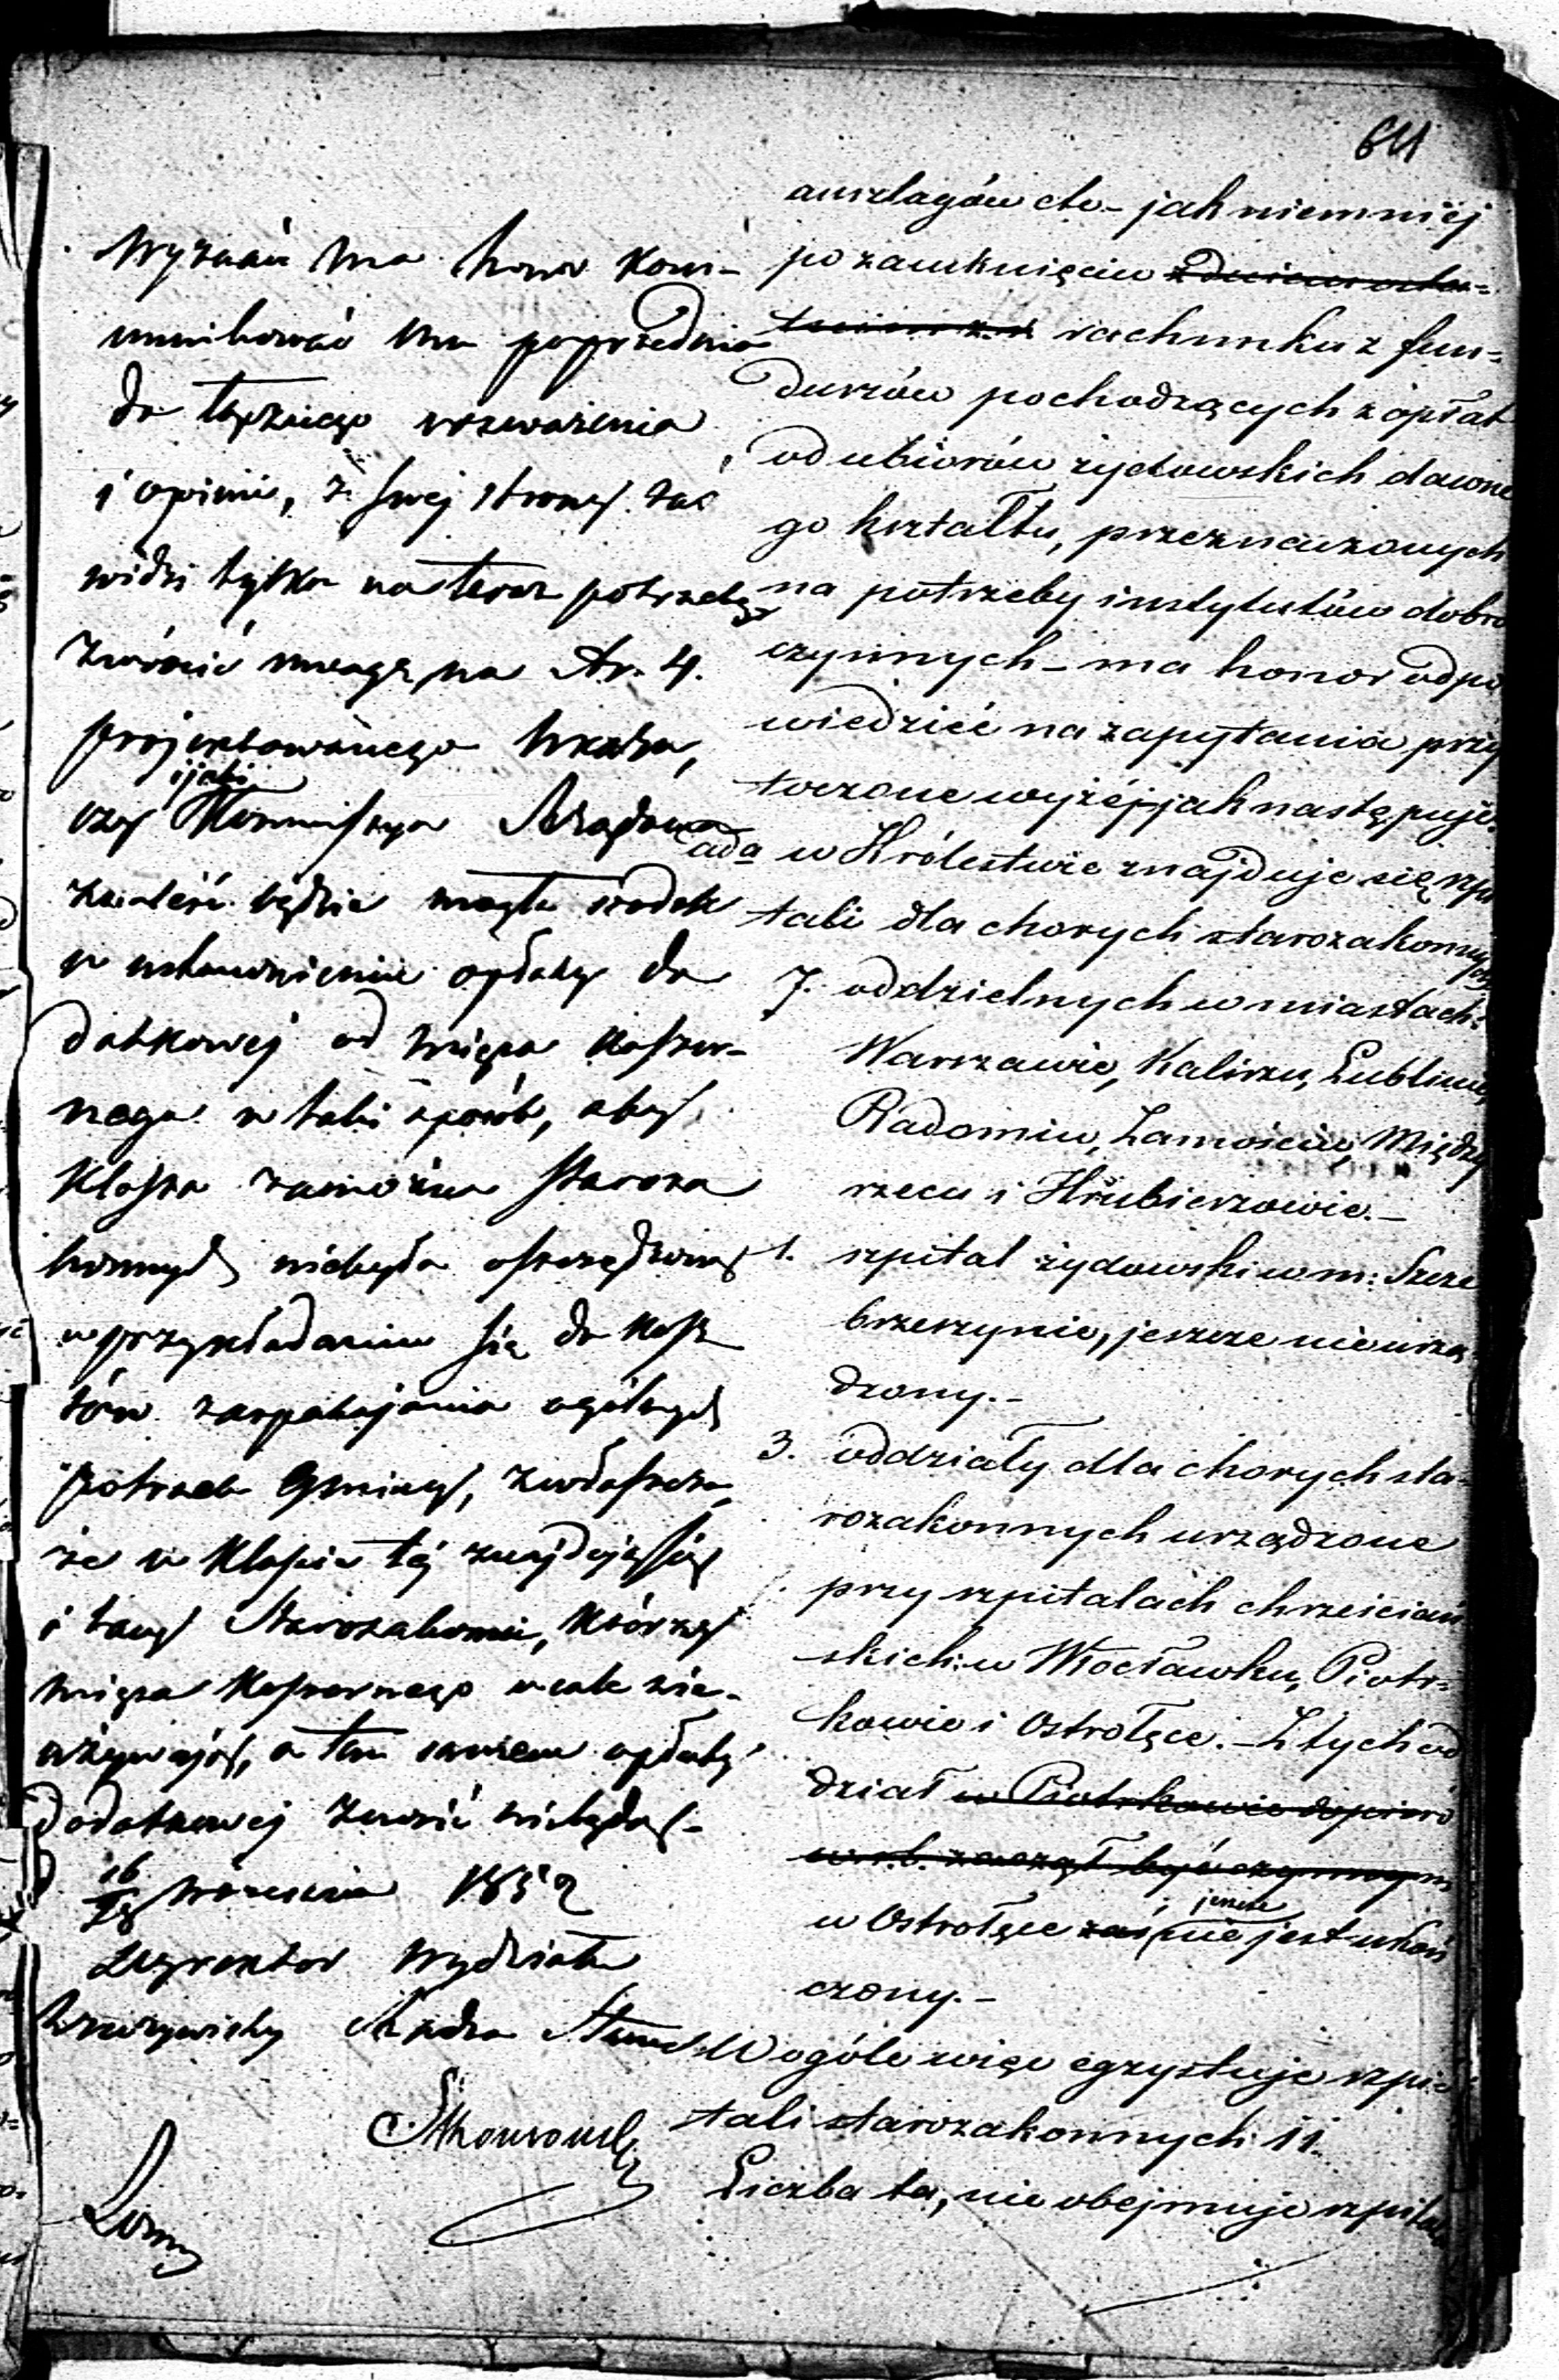 641
Wyznań ma honor kom-
munikować mu poprzednio
do łącznego rozważenia
i opinii, z swej strony zaś
widzi tylko na teraz potrzebę
zwrócić uwagę na Ar. 4.
projektowanego
czy i jaki Kommissya Rządowa
znaleść będzie mogła środek
w ustanowieniu opłaty do
datkowej od mięsa koszer-
nego w taki sposób, aby
klassa zamożna staroza
konnych niebyła oszczędzoną
w przykładaniu się do kosz
tów zaspakajania ogólnych
potrzeb Gminy, zwłaszcza,
że w klassie tej znajdują się
i tacy Starozakonni, którzy
mięsa koszernego wcale nie-
używają, a tem samem opłaty
dodatkowej znosić niebędą-
16/28 Września 1852
Dyrektor Wydziału
Rzeczywisty Radca Stanu
auszlagów etc- jak niemniej
po zamknięciu
rachunku z fun=
duszów pochodzących z opłat
od ubiorów żydowskich dawne
go kształtu, przeznaczonych
na potrzeby instytutów dobro
czynnych- ma honor odpo
wiedzieć na zapytania przy
toczone wyżéj- jak następuje.
ad a w Królestwie znajduje się szpi
tali dla chorych starozakonnych
7. oddzielnych w miastach:
Warszawie, Kaliszu, Lublinie,
Radomiu, Zamościu, Między
rzecu i Hrubieszowie.-
1. szpital żydowski w m: Szcze
brzeszynie, jeszcze nie urzą
dzony.-
3. oddziały dla chorych sta-
rozakonnych urządzone
przy szpitalach chrześciań
skich: w Włocławku, Piotr=
kowie i Ostrołęce.- Z tych od
dział w Piotrkowie dopiero
w r.b. zaczął być czynnym
w Ostrołęce zaś, jeszcze nie jest ukoń
czony.-
W ogóle więc egzystuje szpi
tali starozakonnych 11.
Liczba ta, nie obejmuje szpitala